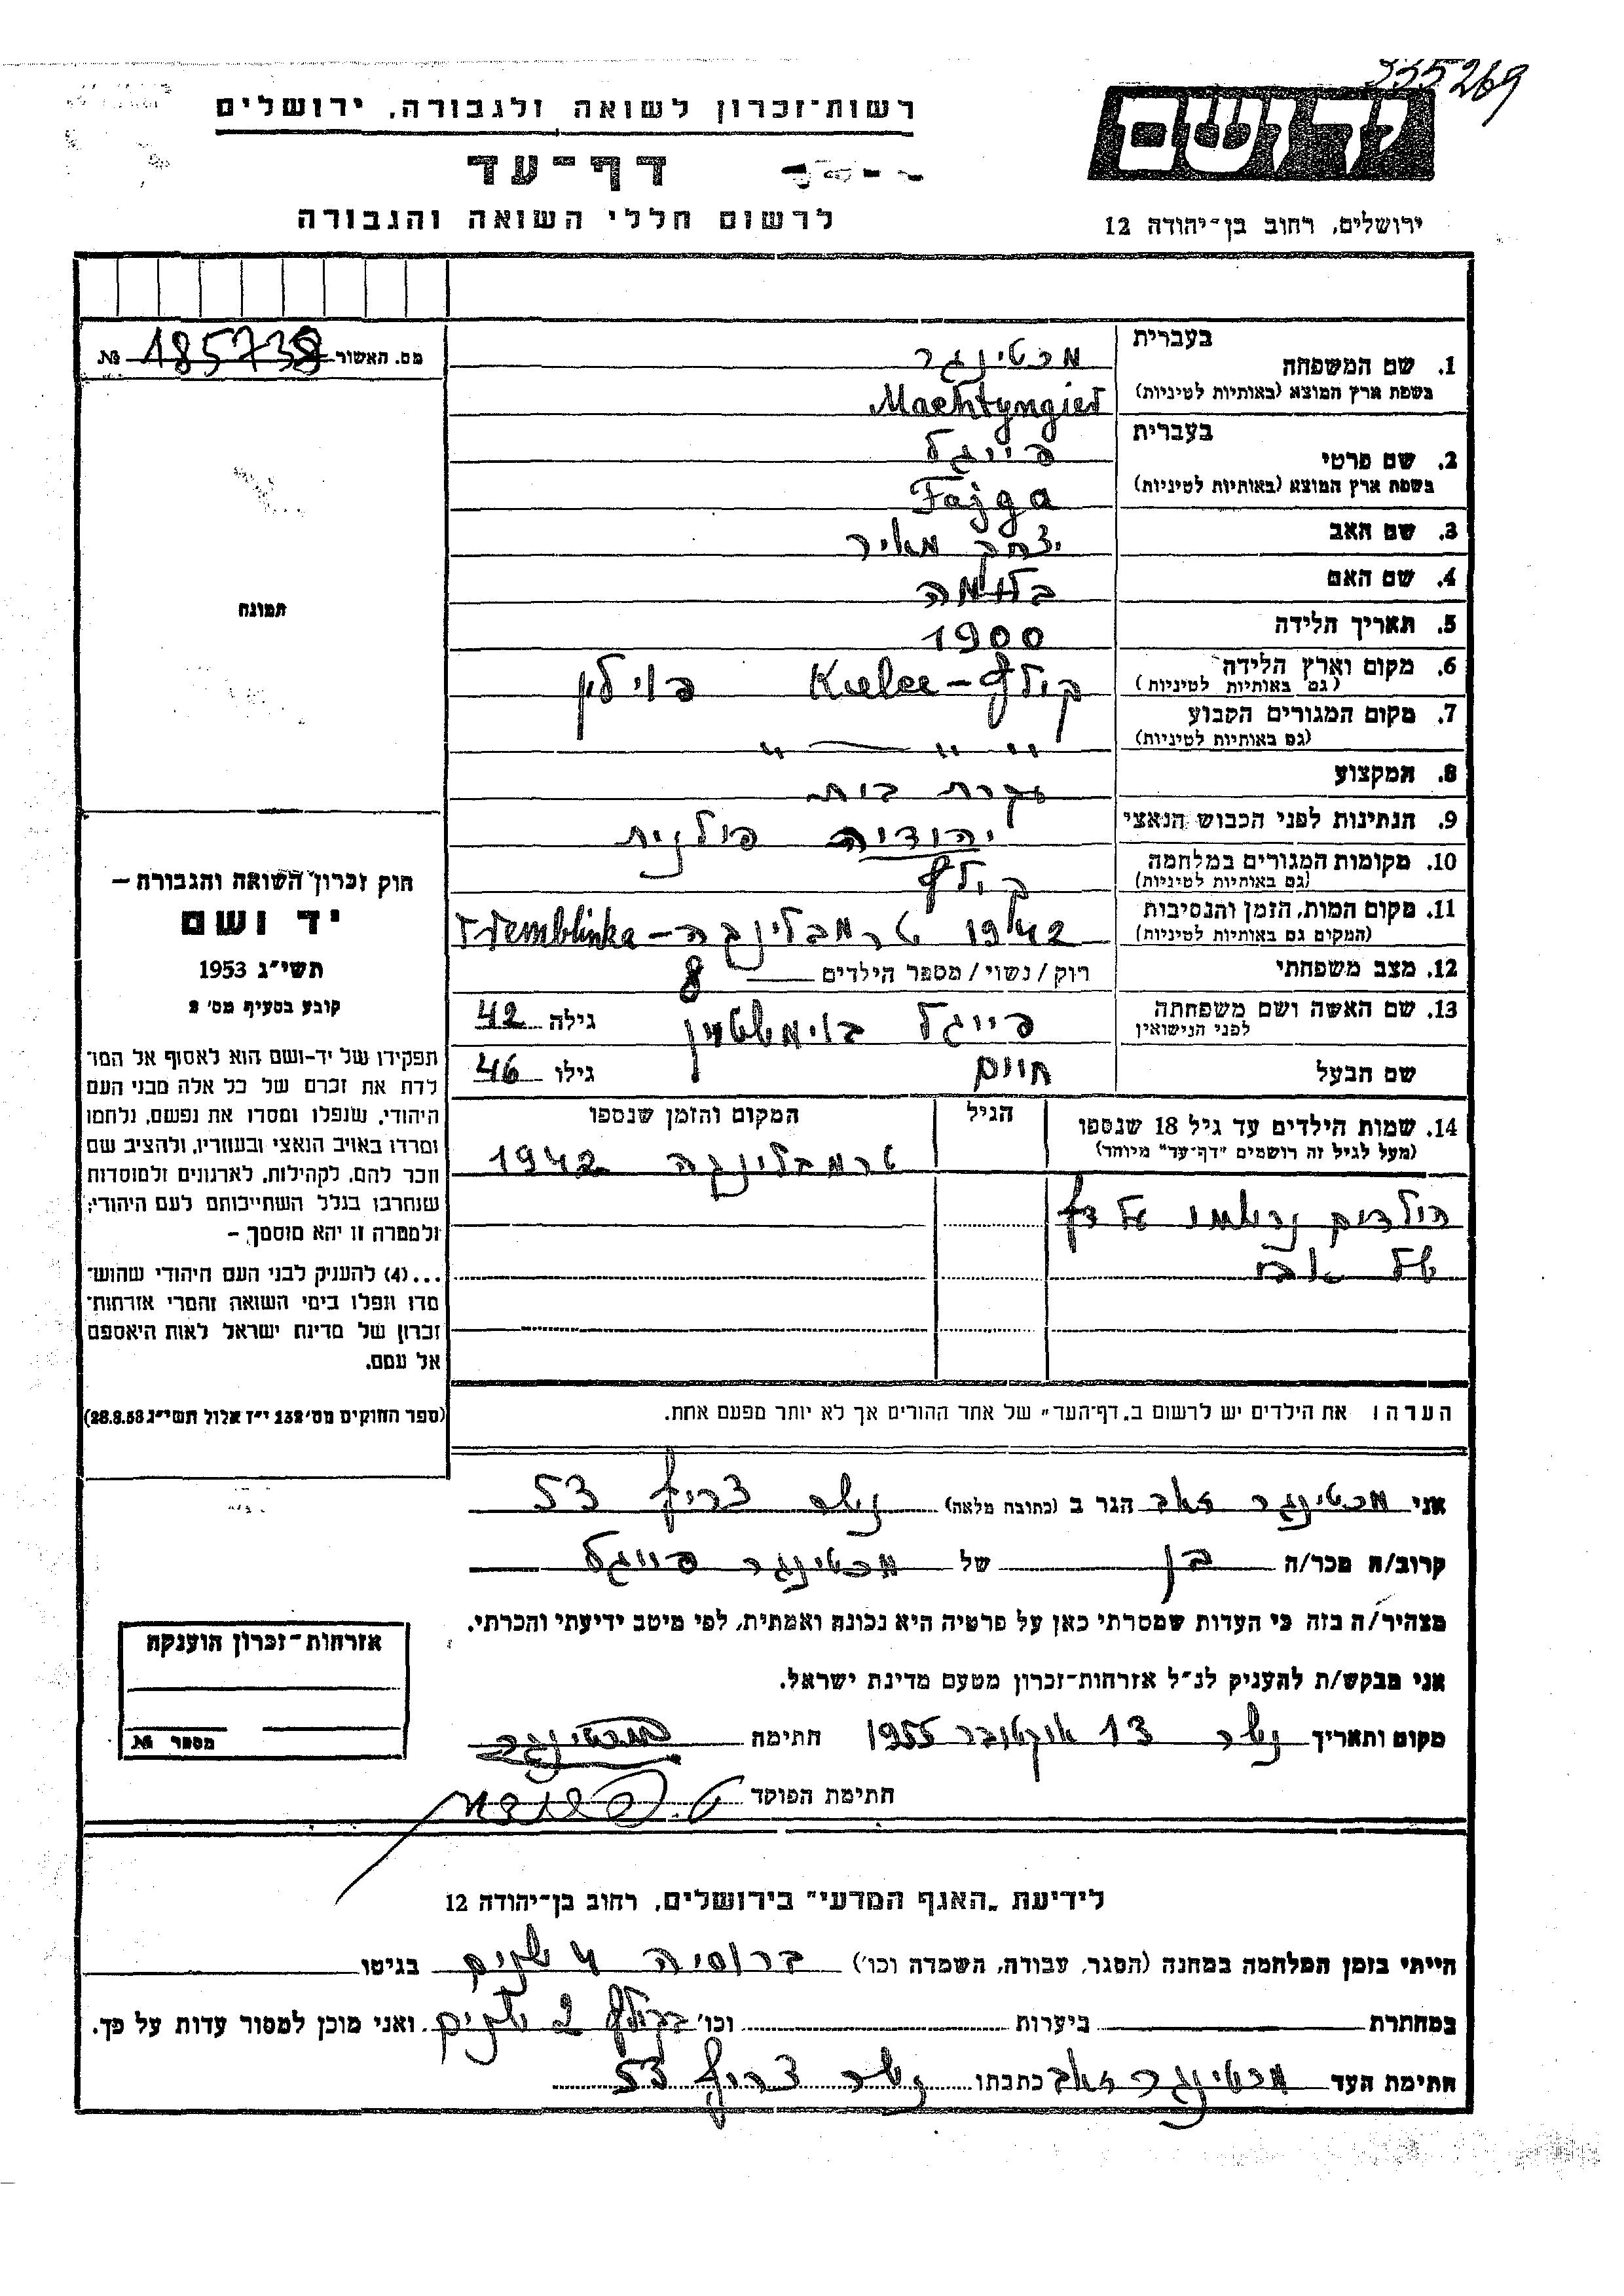 335269
רשות־זכרון לשואה ולגבורה, ירושלים
יד ושם
דף־עד
לרשום חללי השואה והגבורה
ירושלים, רחוב בן־יהודה 12
מס. האשור 185738 №
בעברית
1. שם המשפחה מכטינגר
בשפת ארץ המוצא (באותיות לטיניות) Machtyngier
בעברית
2. שם פרטי פייגל
בשפת ארץ המוצא (באותיות לטיניות) Fajga
3. שם האב יצחק מאיר
4. שם האם בלומה
5. תאריך הלידה 1900
6. מקום וארץ הלידה קילץ - Kielce פוילין
(גם באותיות לטיניות)
7. מקום המגורים הקבוע " — " "
(גם באותיות לטיניות)
8. המקצוע עקרת בית
9. הנתינות לפני הכבוש הנאצי יהודיה פולנית
10. מקומות המגורים במלחמה קילץ
(גם באותיות לטיניות)
11. מקום המות, הזמן והנסיבות 1942 טרמבלינקה - Tremblinka
(המקום גם באותיות לטיניות)
12. מצב משפחתי רוק / נשוי / מספר הילדים 8
13. שם האשה ושם משפחתה פייגל בוימשטיין גילה 42
לפני הנישואין
שם הבעל חיים גילו 46
14. שמות הילדים עד גיל 18 שנספו הגיל המקום והזמן שנספו
(מעל לגיל זה רושמים "דף־עד" מיוחד) טרמבלינקה 1942
הילדים נרשמו על דף
של אב
הערה: את הילדים יש לרשום ב„דף־העד" של אחד ההורים אך לא יותר מפעם אחת.
תמונה
חוק זכרון השואה והגבורה –
יד ושם
תשי"ג 1953
קובע בסעיף מס' 2
תפקידו של יד-ושם הוא לאסוף אל המו־
לדת את זכרם של כל אלה מבני העם
היהודי, שנפלו ומסרו את נפשם, נלחמו
ומרדו באויב הנאצי ובעוזריו, ולהציב שם
וזכר להם, לקהילות, לארגונים ולמוסדות
שנחרבו בגלל השתייכותם לעם היהודי;
ולמטרה זו יהא מוסמך –
...(4) להעניק לבני העם היהודי שהוש־
מדו ונפלו בימי השואה והמרי אזרחות־
זכרון של מדינת ישראל לאות היאספם
אל עמם.
(ספר החוקים מס' 132 י"ז אלול תשי"ג 28.8.53)
אני מכטינגר זאב הגר ב (כתובת מלאה) נשר צריף 53
קרוב/ה מכר/ה בן של מכטינגר פייגל
מצהיר/ה בזה כי העדות שמסרתי כאן על פרטיה היא נכונה ואמתית, לפי מיטב ידיעתי והכרתי.
אני מבקש/ת להעניק לנ"ל אזרחות־זכרון מטעם מדינת ישראל.
מקום ותאריך נשר 13 אוקטובר 1955 חתימה מכטינגר
חתימת הפוקד
אזרחות־זכרון הוענקה
מספר №
לידיעת „האגף המדעי" בירושלים, רחוב בן־יהודה 12
הייתי בזמן המלחמה במחנה (הסגר, עבודה, השמדה וכו') ברוסיה 4 שנים בגיטו
במחתרת ביערות וכו' בקילץ 2 שנים ואני מוכן למסור עדות על כך.
חתימת העד מכטינגר זאב כתבתו נשר צריף 53